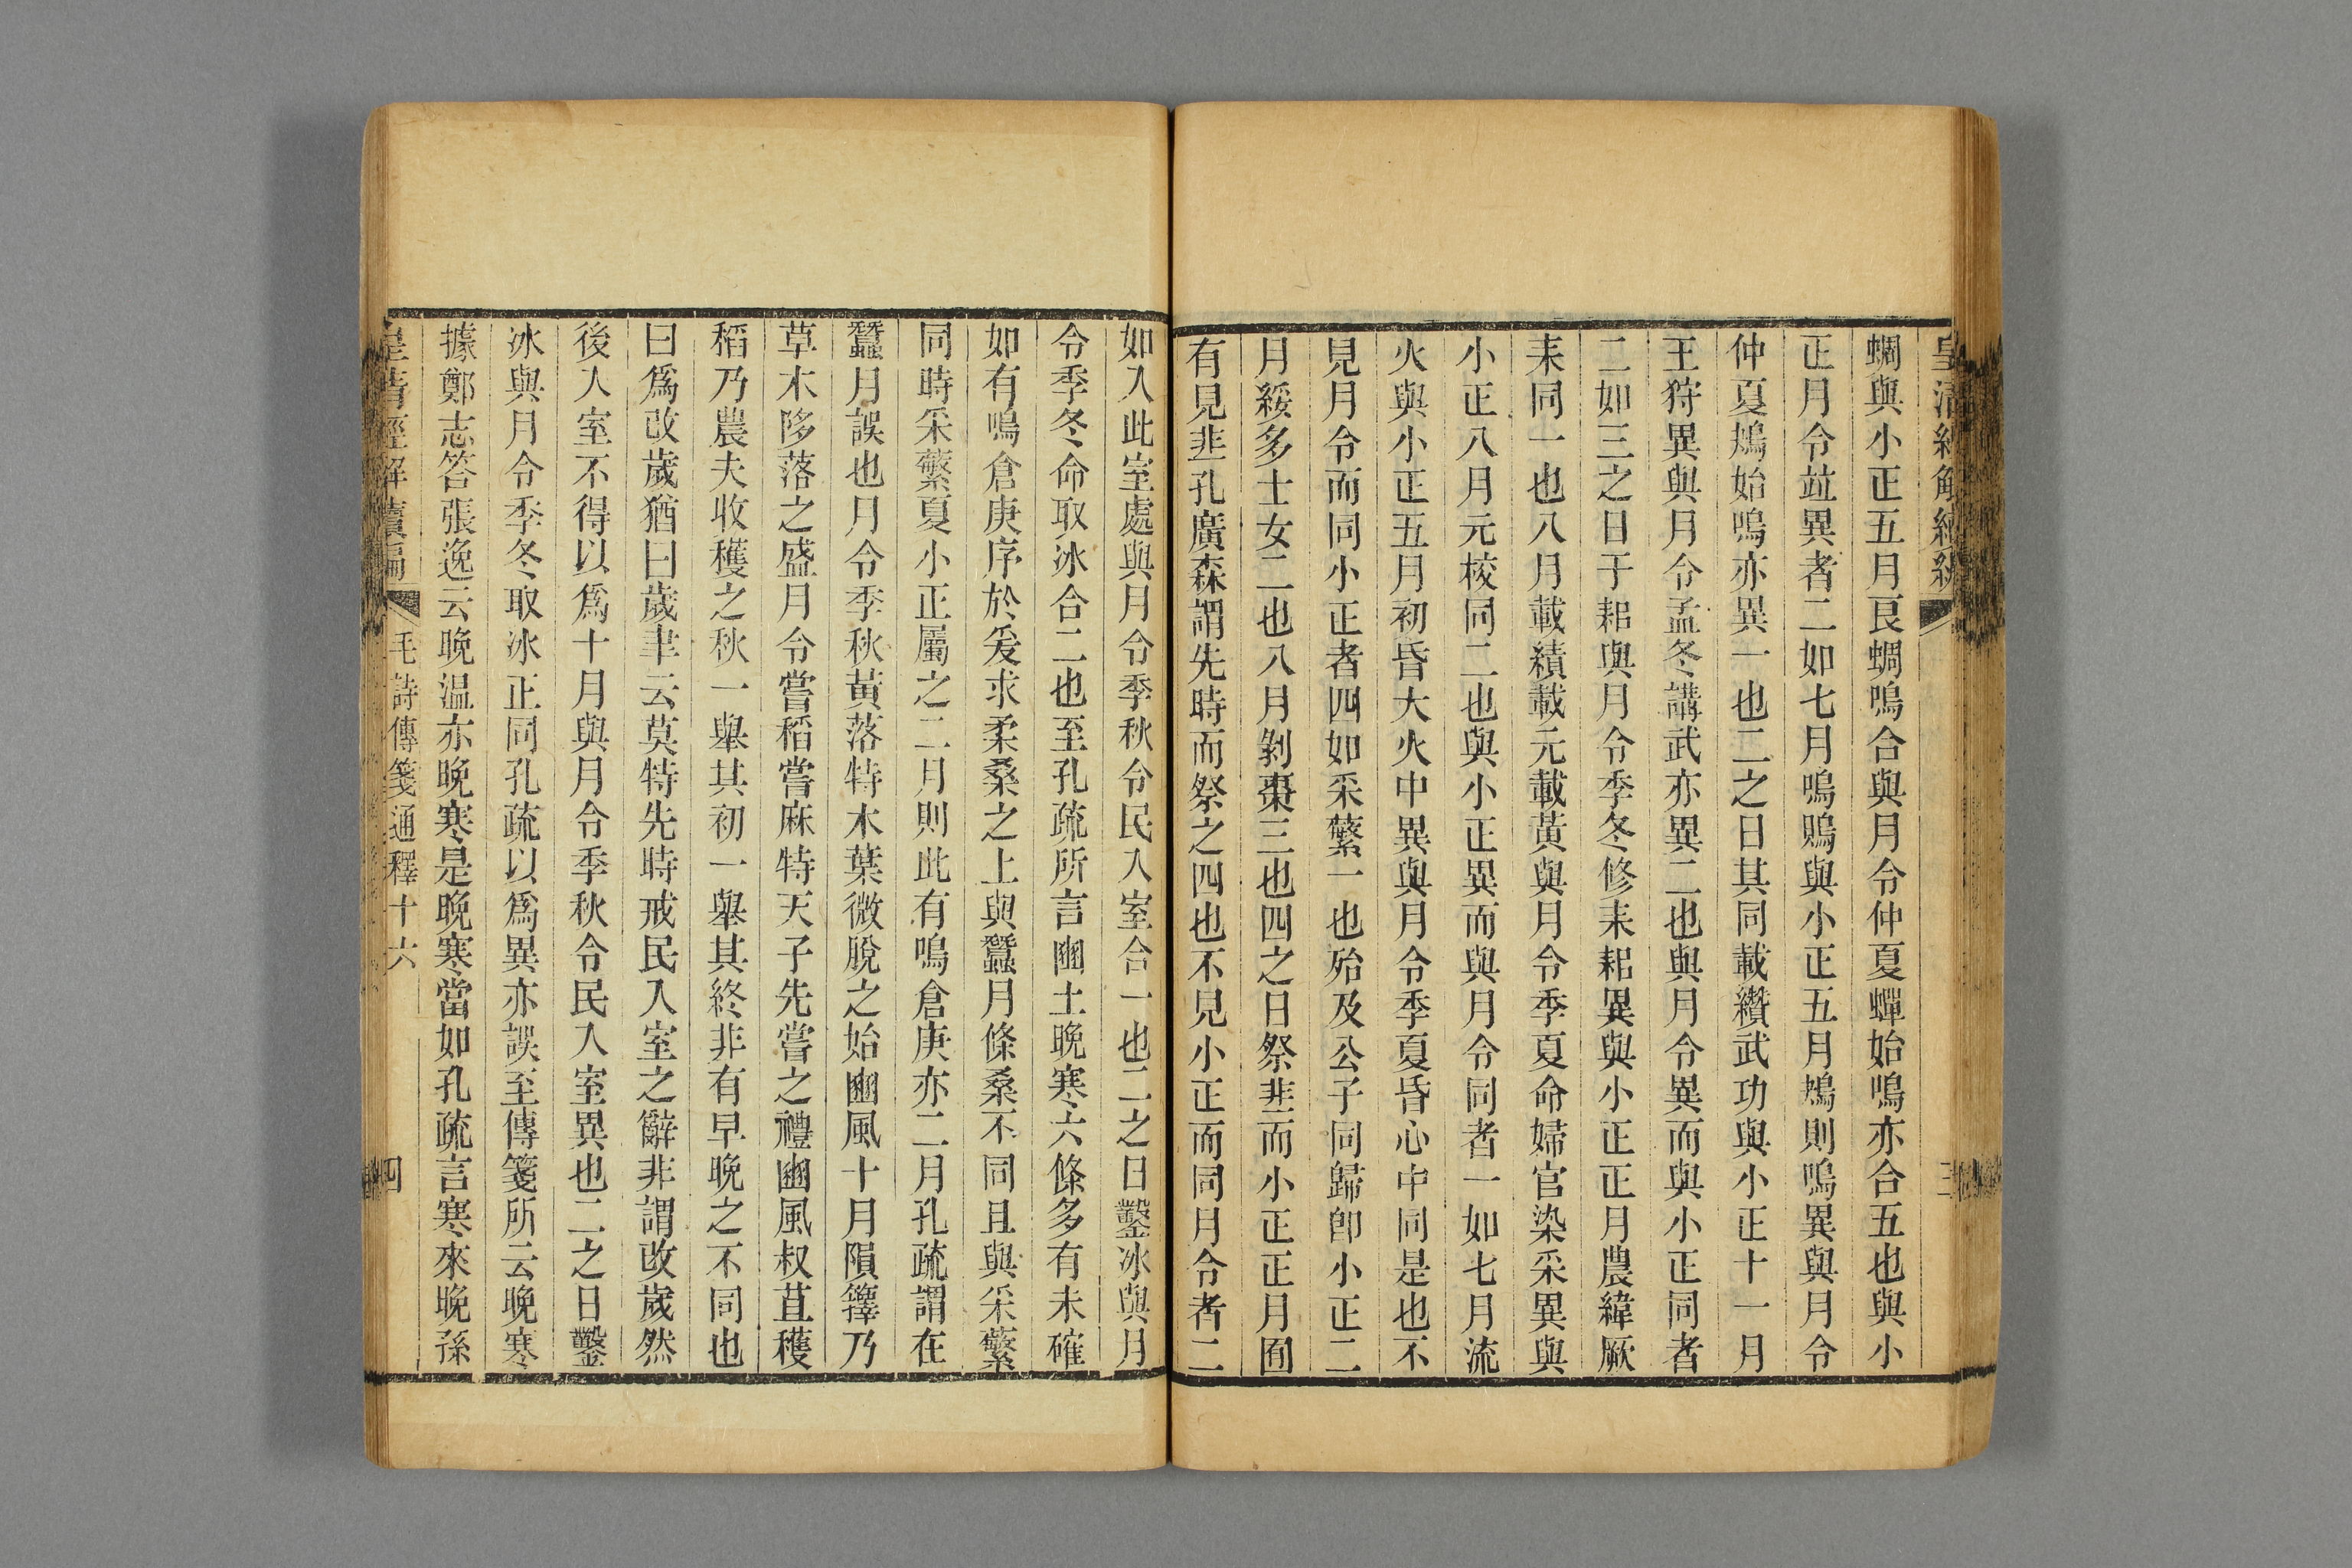 皇清經解續編
三
蜩與小正五月良蜩鳴合與月令仲夏蟬始鳴亦合五也與小
正月令竝異者二如七月鳴鵙與小正五月鴂則鳴異與月令
仲夏鵙始鳴亦異一也二之日其同載纘武功與小正十一月
王狩異與月令孟冬講武亦異二也與月令異而與小正同者
二如三之日于耜與月令季冬修耒耜異與小正正月農緯厥
耒同一也八月載績載元載黃與月令季夏命婦官染采異與
小正八月元校同二也與小正異而與月令同者一如七月流
火與小正五月初昏大火中異與月令季夏昏心中同是也不
見月令而同小正者四如采蘩一也殆及公子同歸卽小正二
月綏多士女二也八月剝棗三也四之日祭韭而小正正月囿
有見韭孔廣森謂先時而祭之四也不見小正而同月令者二
如入此室處與月令季秋令民入室合一也二之日鑿冰與月
令季冬命取冰合二也至孔疏所言豳土晚寒六條多有未確
如有鳴倉庚序於爰求柔桑之上與蠶月條桑不同且與采蘩
同時采蘩夏小正屬之二月則此有鳴倉庚亦二月孔疏謂在
蠶月誤也月令季秋黃落特木葉微脫之始豳風十月隕籜乃
草木陊落之盛月令嘗稻嘗麻特天子先嘗之禮豳風叔苴穫
稻乃農夫收穫之秋一舉其初一舉其終非有早晚之不同也
曰爲改歲猶曰歲聿云莫特先時戒民入室之辭非謂改歲然
後入室不得以爲十月與月令季秋令民入室異也二之日鑿
冰與月令季冬取冰正同孔疏以爲異亦誤至傳箋所云晚寒
據鄭志答張逸云晚溫亦晚寒是晚寒當如孔疏言寒來晚孫
皇清經解續編
毛詩傳箋通釋十六
四